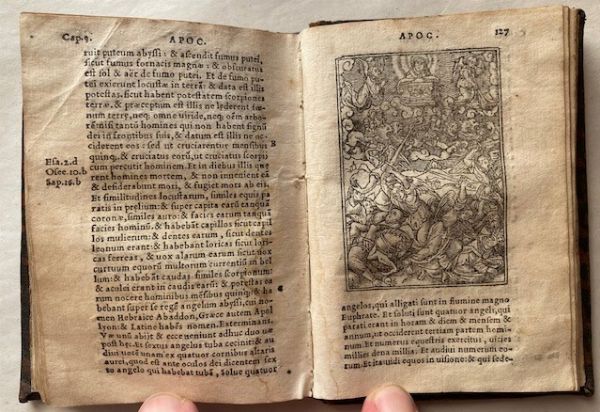 Cap.9. APOC.
ruit puteum abyssi: & ascendit fumus putei,
sicut fumus fornacis magnæ: & obscuratus
est sol & aër de fumo putei. Et de fumo pu
tei exierunt locustæ in terrā: & data est illis
potestas, sicut habent potestatem scorpiones
terræ, & præceptum est illis ne lęderent fœ-
num terrę, neq; omne viride, neq; oēm arbo-
rē: nisi tantū homines qui non habent signū
dei in frontibus suis, & datum est illis ne oc
ciderent eos: sed ut cruciarentur mensibus
B
quinq; & cruciatus eorū, ut cruciatus scorpij
Esa.2.d
cum percutit hominem. Et in diebus illis quæ
Osee.10.b
rent homines mortem, & non invenient eā
Sap.16.b
& desiderabunt mori, & fugiet mors ab eis.
Et similitudines locustarum, similes equis pa
ratis in prelium: & super capita earū tanquā
coronæ, similes auro: & facies earum tanquā
facies hominū. & habebāt capillos sicut capil
los mulierum: & dentes earum, sicut dentes
leonum erant: & habebant loricas sicut lori-
cas ferreas, & uox alarum earum sicut uox
curruum equorū multorum currentiū in bel
lum: & habebāt caudas similes scorpionum:
& aculei erant in caudis earū: & potestas ea
rum nocere hominibus mēsibus quinq; & ha
bebant super se regē angelum abyssi, cui no-
men Hebraice Abaddon, Græce autem Apol
lyon: & Latine habēs nomen. Exterminans.
Væ unū abijt & ecce veniunt adhuc duo uæ
post hęc. Et sextus angelus tuba cecinit: & au
diui uocē unam ex quatuor cornibus altaris
aurei, quod est ante oculos dei dicentem sex
to angelo qui habebat tubā, solue quatuor
APOC. 127
angelos, qui alligati sunt in flumine magno
Euphrate. Et soluti sunt quatuor angeli, qui
parati erant in horam & diem & mensem &
annum, ut occiderent tertiam partem homi-
num Et numerus equestris exercitus, uicies
millies dena millia. Et audiui numerum eo-
rum. Et ita uidi equos in uisione: & qui sede-